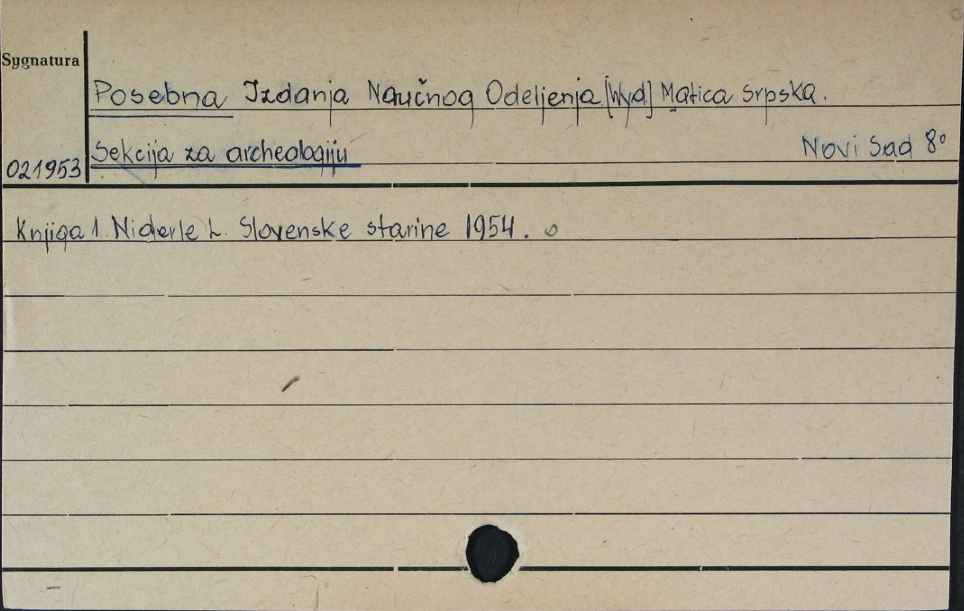 Sygnatura
Posebna Izdanja Naučnog Odeljenja [Wyd] Matica Srpska.
Sekcija za archeologiju Novi Sad 8°
021953
Knjiga 1. Niderle L. Slovenske starine 1954. o